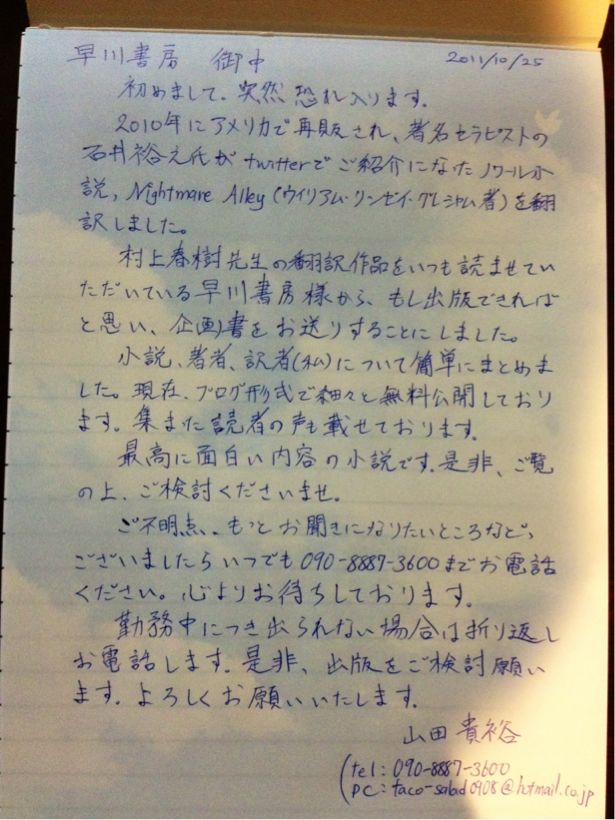 早川書房 御中 2011/10/25
初めまして。突然恐れ入ります。
2010年にアメリカで再販され、著名セラピストの
石井裕之氏がtwitterでご紹介になったノワール小
説，Nightmare Alley（ウイリアム・リンゼイ・グレシャム著）を翻
訳しました。
村上春樹先生の翻訳作品をいつも読ませてい
ただいている早川書房様から、もし出版できれば
と思い、企画書をお送りすることにしました。
小説、著者、訳者（私）について簡単にまとめま
した。現在、ブログ形式で細々と無料公開しており
ます。集また読者の声も載せております。
最高に面白い内容の小説です。是非、ご覧
の上、ご検討くださいませ。
ご不明点、もっとお聞きになりたいところなど、
ございましたらいつでも090-8887-3600までお電話
ください。心よりお待ちしております。
勤務中につき出られない場合は折り返し
お電話します。是非、出版をご検討願い
ます。よろしくお願いいたします。
山田貴裕
(tel: 090-8887-3600
pc: taco-salad0908@hotmail.co.jp